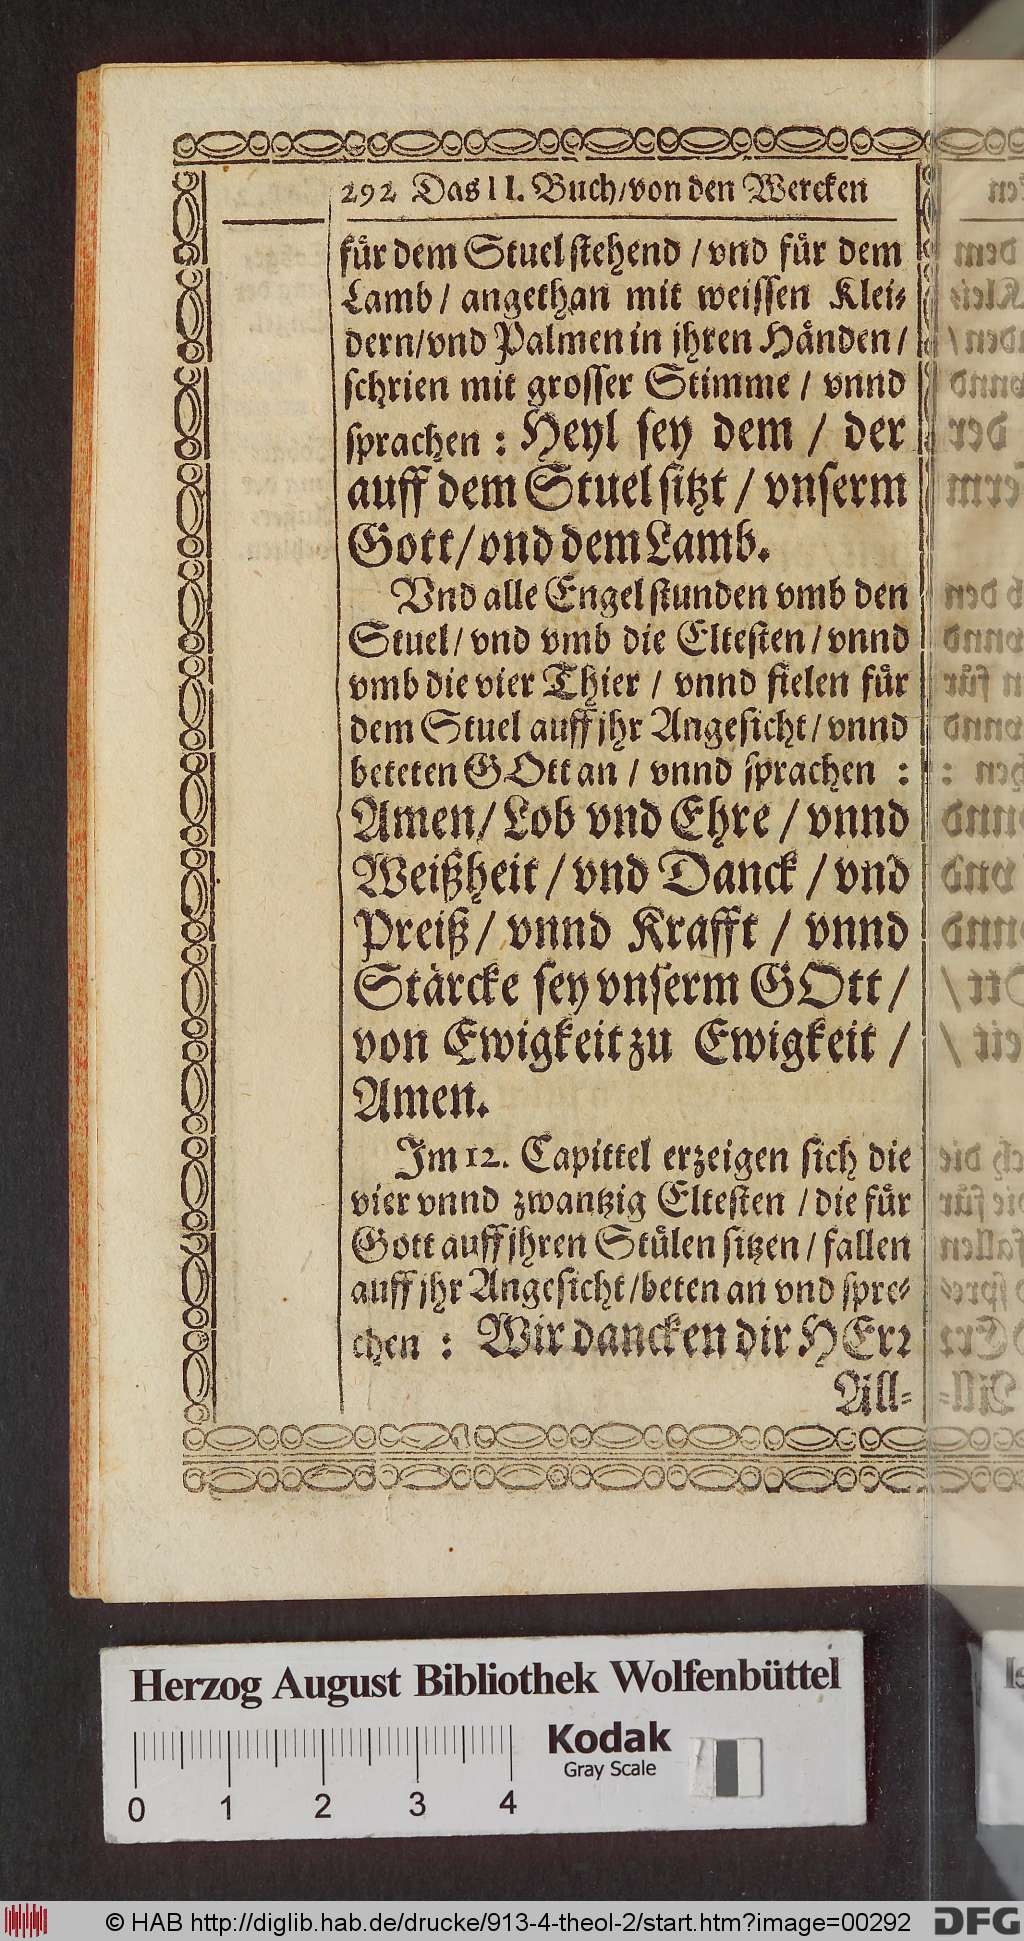 292 Das II. Buch/von den Wercken
für dem Stuel stehend / vnd für dem
Lamb / angethan mit weissen Klei⸗
dern/vnd Palmen in jhren Händen /
schrien mit grosser Stimme / vnnd
sprachen : Heyl sey dem / der
auff dem Stuel sitzt / vnserm
Gott/vnd dem Lamb.
Vnd alle Engel stunden vmb den
Stuel/ vnd vmb die Eltesten / vnnd
vmb die vier Thier / vnnd fielen für
dem Stuel auff jhr Angesicht/ vnnd
beteten GOtt an / vnnd sprachen :
Amen/ Lob vnd Ehre / vnnd
Weißheit / vnd Danck / vnd
Preiß / vnnd Krafft / vnnd
Stärcke sey vnserm GOtt /
von Ewigkeit zu Ewigkeit /
Amen.
Im 12. Capittel erzeigen sich die
vier vnnd zwantzig Eltesten / die für
Gott auff jhren Stülen sitzen / fallen
auff jhr Angesicht/beten an vnd spre⸗
chen : Wir dancken dir HErꝛ
All⸗
Herzog August Bibliothek Wolfenbüttel
Kodak
Gray Scale
0 1 2 3 4
© HAB http://diglib.hab.de/drucke/913-4-theol-2/start.htm?image=00292
DFG